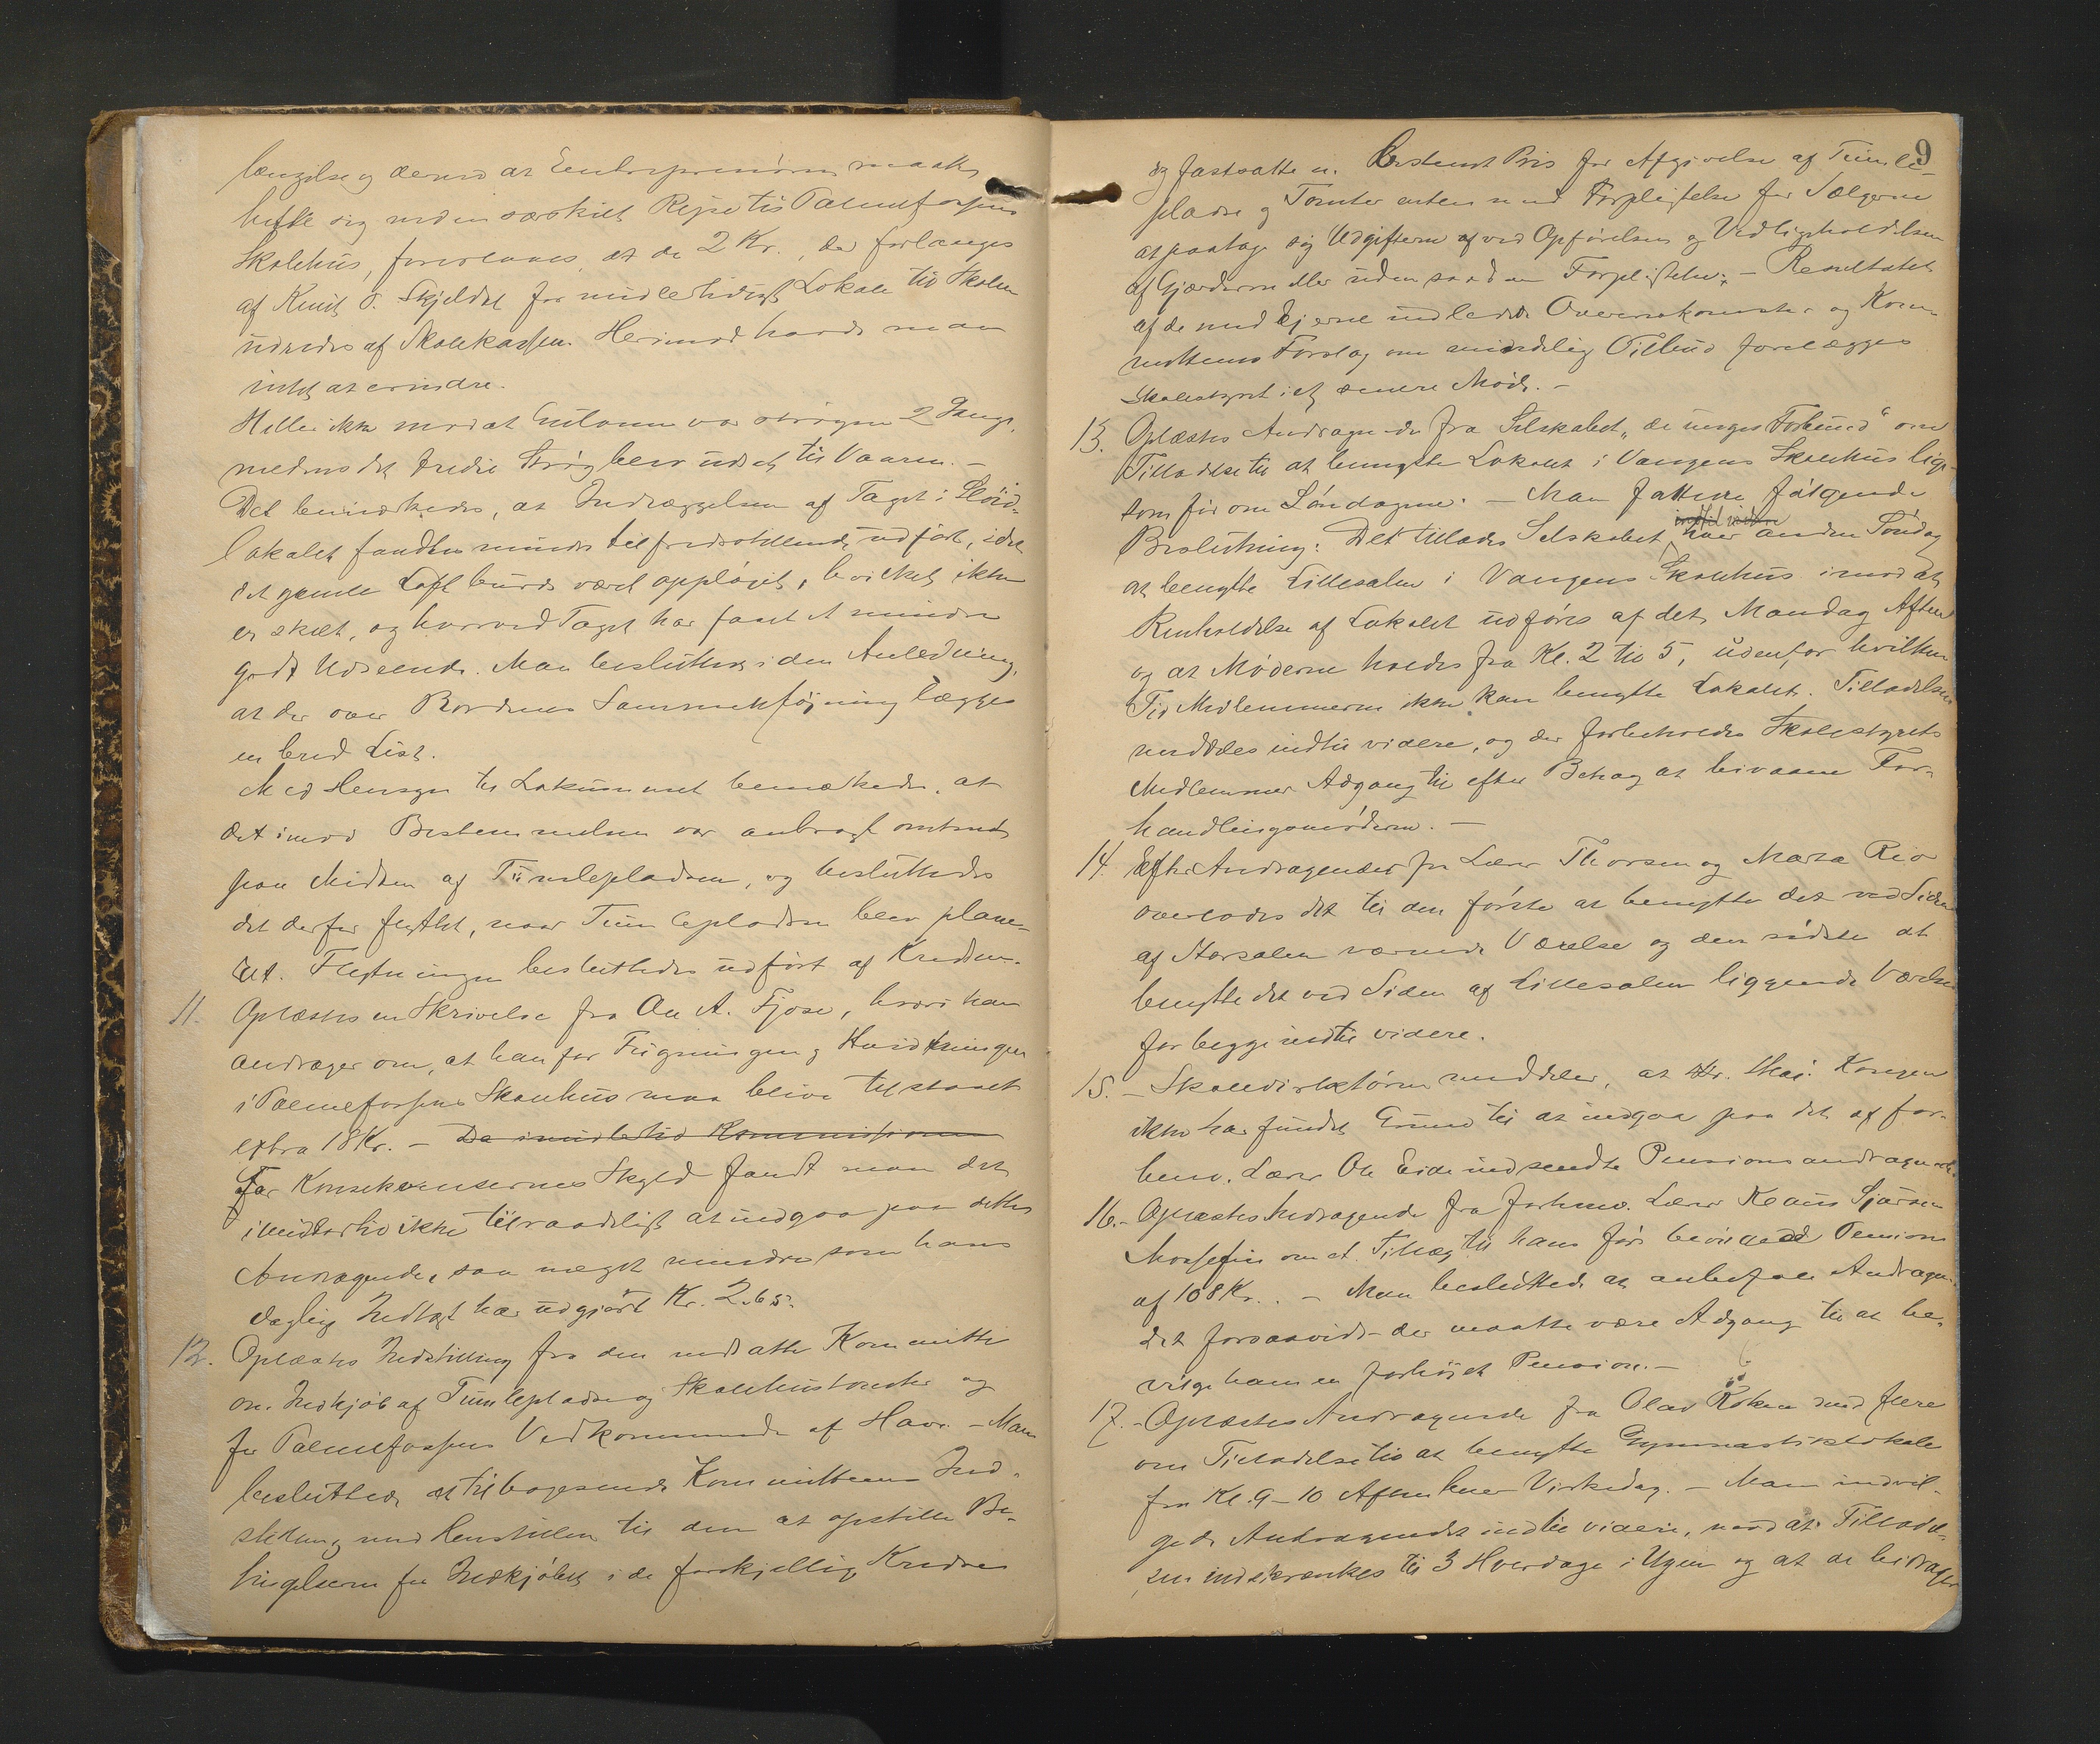 længelse og derved at Entreprenøren maatte
hefte sig med en særskilt Rejse til Palmefossens
Skolehus, foresloges at de 2 Kr., der forlanges
af Knut O. Skjeldal for midlertidigt Lokale til Skolen
udredes af Skolekassen. Herimod havde man
intet at erindre.
Heller ikke mod at Gulvene var strøgen 2 Gange,
medens det tredie Strøg blev udsat til Vaaren. –
Det bemærkedes, at Indlæggelsen af Taget i Sløid-
lokalet fandtes mindre tilfredsstillende udført, idet
det gamle Loft burde været oppløiet, hvilket ikke
er skeet, og hvorved Taget har faaet et mindre
godt Udseende. Man besluttede i den Anledning,
at der over Bordenes Sammenføining lægges
en bred List.
Med Hensyn til Lokummet bemærkedes, at
det imod Bestemmelsen var anbragt omtrent
paa Midten af Tumlepladsen, og besluttedes
det derfor flyttet, naar Tumlepladsen blev plane-
ret. Flytningen besluttedes udført af Kredsen.
11. Oplæstes en Skrivelse fra Ole A. Fjose, hvori han
andrager om, at han for Fugningen og Hvidtningen
i Palmefossens Skolehus maa blive tilstaaet
extra 18 Kr. – Da imidlertid Kommissionen
For Konsekvensernes Skyld fandt man det
imidlertid ikke tilraadeligt at indgaa paa dette
Andragende, saa meget mindre som hans
daglig Indtægt har udgjort Kr. 2.65.
12. Oplæstes Indstilling fra den nedsatte Kommitte
om Indkjøb af Tumlepladse og Skolehustomter og
for Palmefossens Vedkommende af Have. – Man
besluttede at tilbagesende Kommitteens Ind-
stilling med Henstillen til den at opstille Be-
tingelserne for Indkjøbet i de forskjellige Kredse
9
og fastsatte en bestemt Pris for Afgivelse af Tumle-
pladse og Tomter enten med Forpligtelse for Sælgerne
at paatage sig Udgifterne af ved Opførelsen og Vedligeholdelsen
af Gjærderne eller uden saadan Forpligtelse. – Resultatet
af de med Ejerne indledede Overenskomster og Kom-
mitteens Forslag om mindelig Tilbud forelægges
Skolestyret i et senere Møde. –
13. Oplæstes Andragende fra Selskabet „de unges Forbund“ om
Tilladelse til at benytte Lokalet i Vangens Skolehus lige-
som før om Søndagene. – Man fattede følgende
indtil videre
Beslutning: Det tillades Selskabet hver anden Søndag
at benytte Lillesalen i Vangens Skolehus imod at
Renholdelse af Lokalet udføres af det Mandag Aften
og at Møderne holdes fra Kl. 2 til 5, udenfor hvilken
Tid Medlemmerne ikke kan benytte Lokalet. Tilladelsen
meddeles indtil videre, og der forbeholdes Skolestyrets
Medlemmer Adgang til efter Behag at bivaane For-
handlingsmøderne. –
14. Efter Andragender fra Lærer Thorsen og Marta Rio
overlodes det til den første at benytte det ved Siden
af Storsalen værende Værelse og den sidste at
benytte det ved Siden af Lillesalen liggende Værelse
for begge indtil videre.
15. – Skoledirektøren meddeler, at Hs. Maj. Kongen
ikke har fundet Grund til at indgaa paa det af for-
henv. Lærer Ole Eide indsendte Pensionsandragende.
16. – Oplæstes Andragende fra forhenv. Lærer Klaus Sjursen
Mossefin om et Tillæg til hans før bevilgede Pension
af 108 Kr. – Man besluttede at anbefale Andragen-
det forsaavidt der maatte være Adgang til at be-
vilge ham en forhøiet Pension. –
17. – Oplæstes Andragende fra Olav Røken med flere
om Tilladelse til at benytte Gymnastiklokale
fra Kl. 9–10 Aften hver Virkedag. – Man indvil-
gede Andragendet indtil videre, mod at Tilladel-
sen indskrænkes til 3 Hverdage i Ugen og at de bidrager